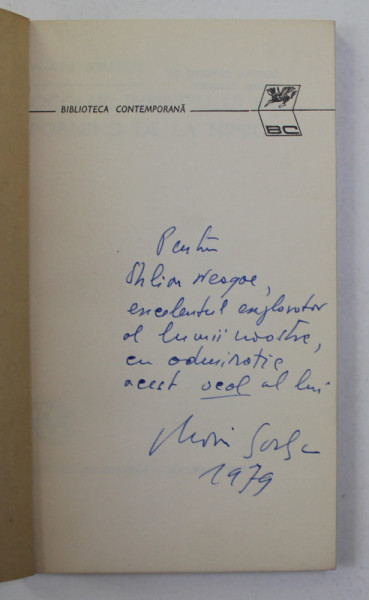 BIBLIOTECA CONTEMPORANĂ
BC
Pentru
Stelian Neagoe,
excelentul explorator
al lumii noastre,
cu admirație
acest ocol al lui
Marin Sorescu
1979